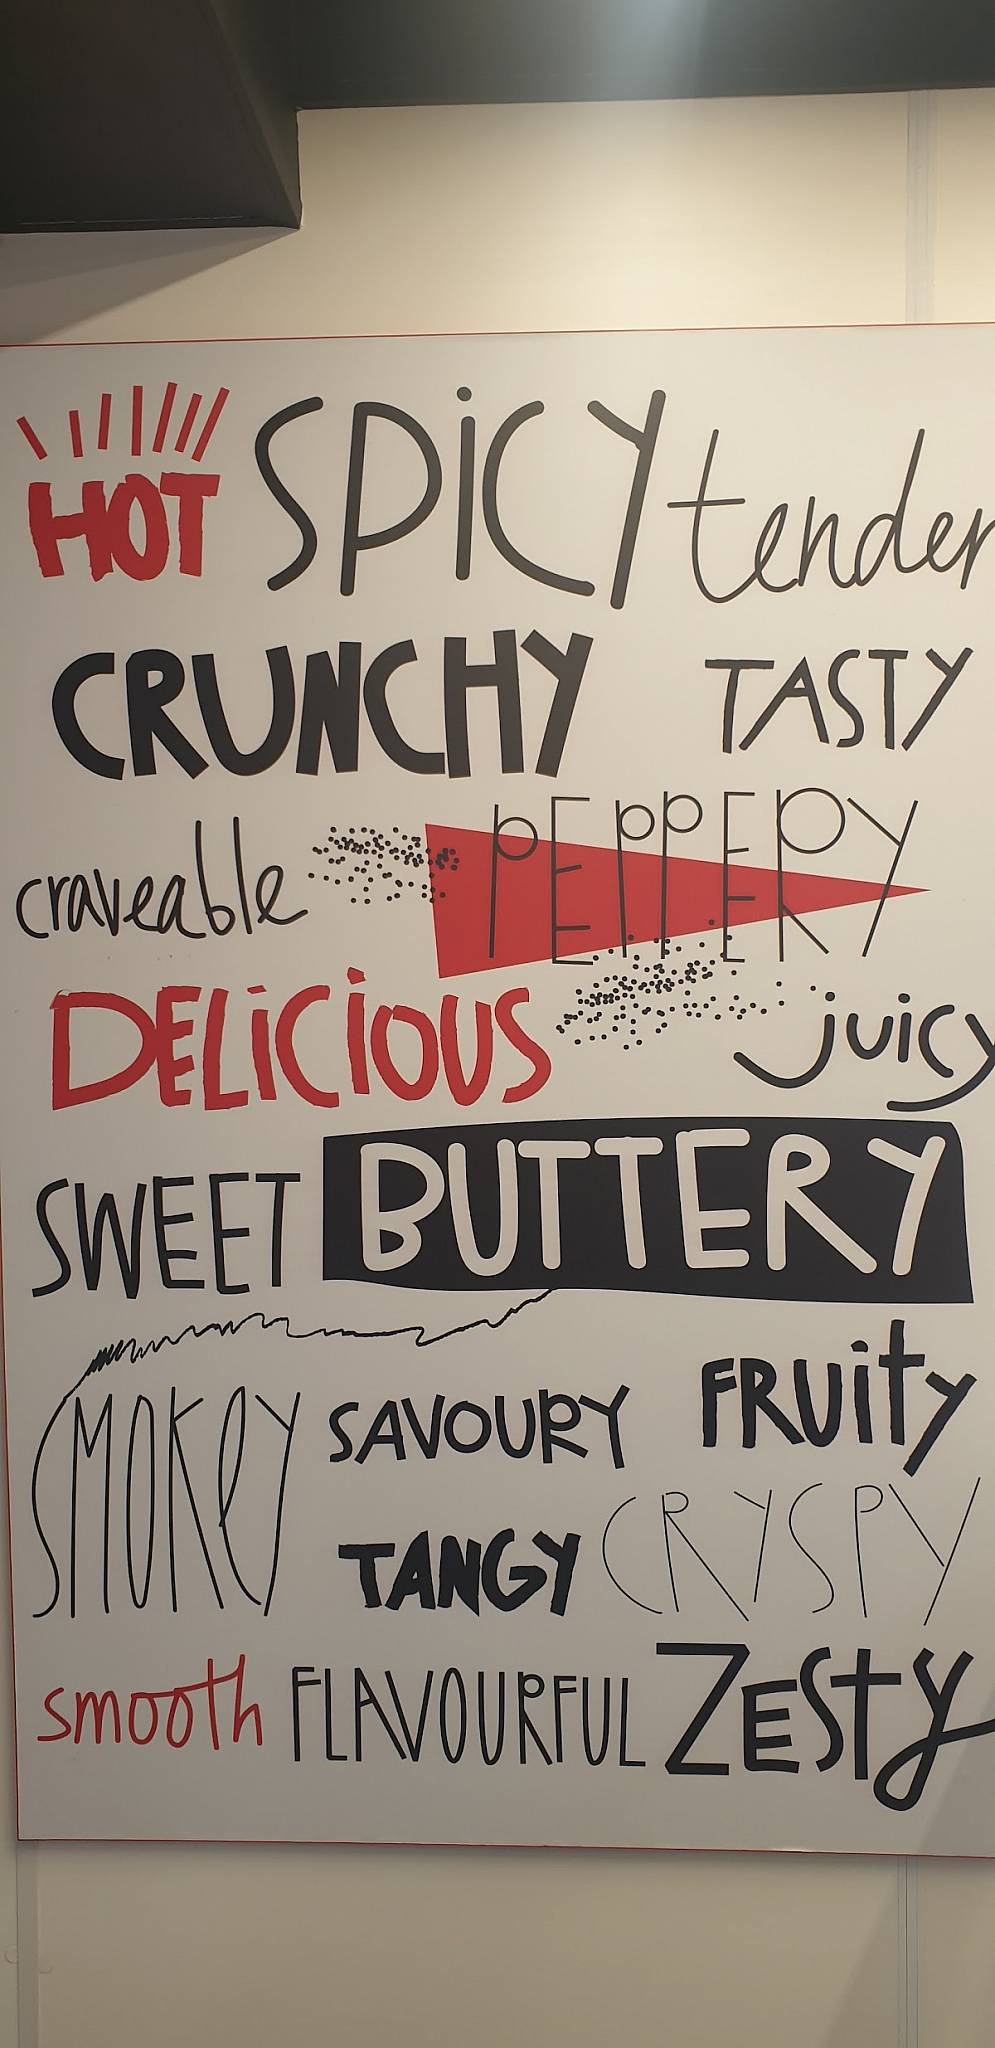 HOT SPiCY tender
CRUNCHY TASTY
craveable PEPPERY
DELiCiOUS juicy
SWEET BUTTERY
SMOKeY SAVOURY FRUity
TANGY CRYSPY
smooth FLAVOURFUL ZESty